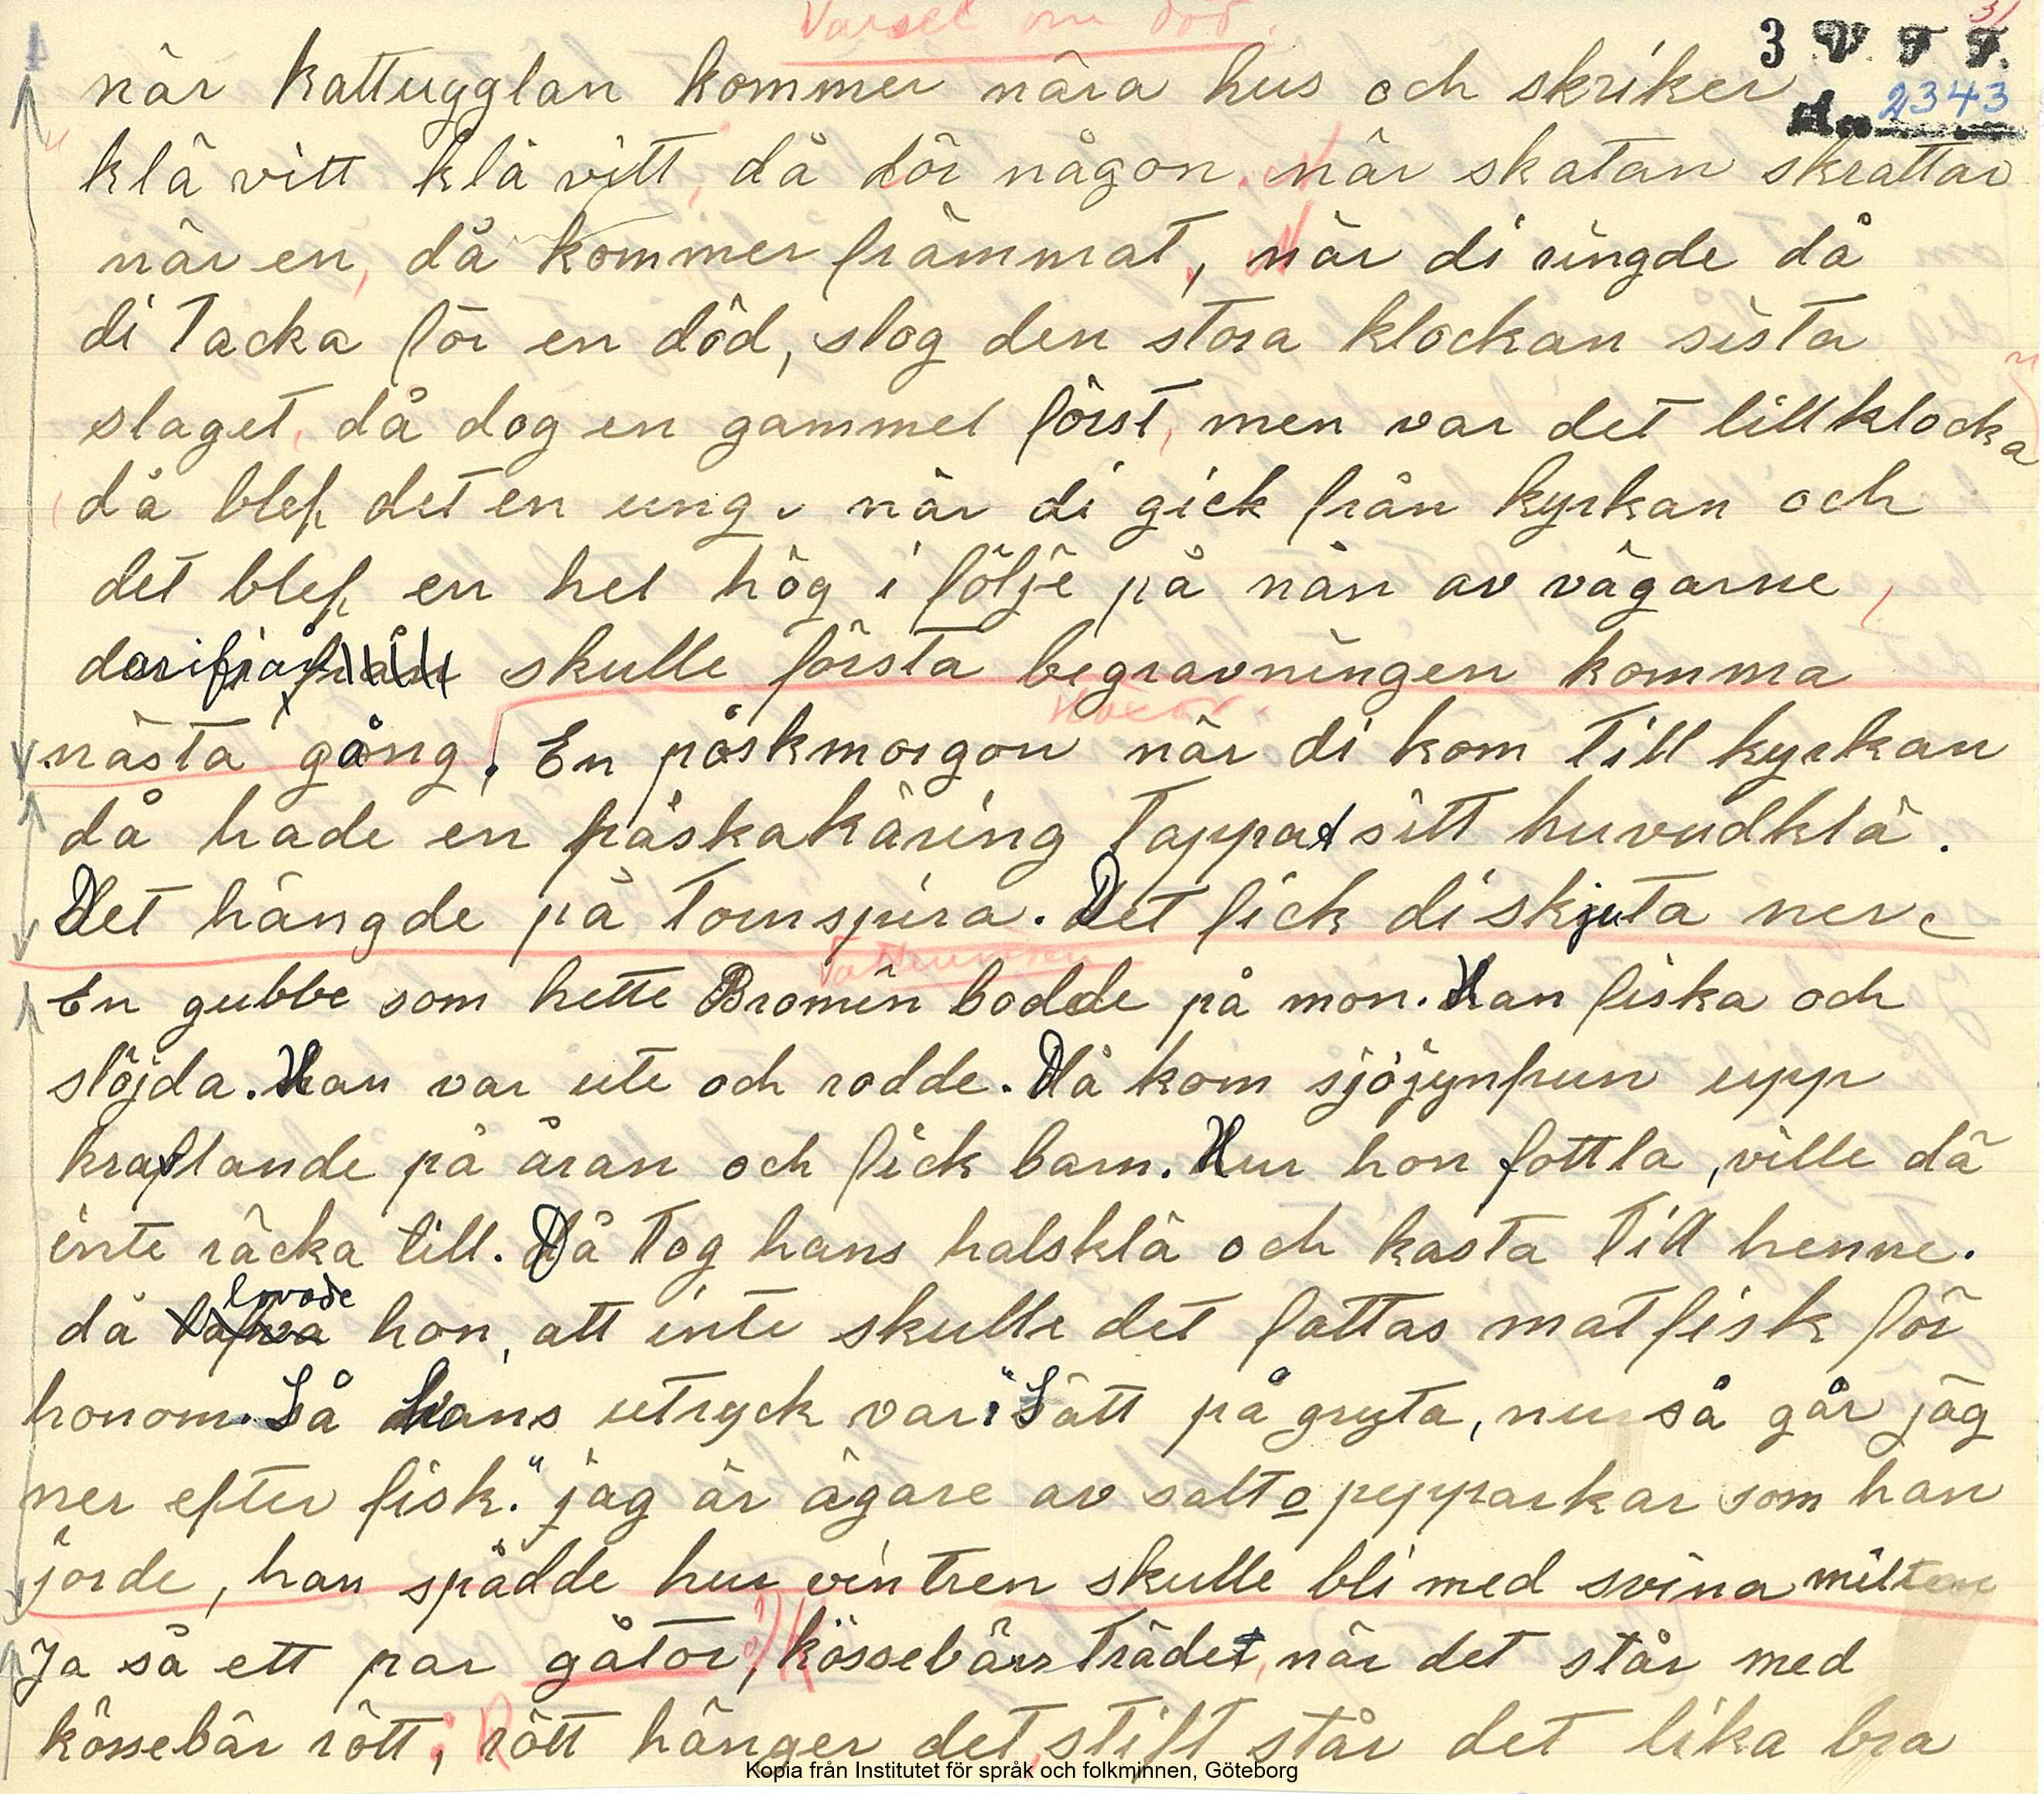 Varsel om död.
31
3 V. F. F.
2343
när kattugglan kommer nära hus och skriker
klä vitt klä vitt, då dör någon. När skatan skrattar
när en, då kommer främmat, När di ringde då
di tacka för en död, slog den stora klockan sista
slaget, då dog en gammel först, men var det lillklocka
då blef det en ung. när di gick från kyrkan och
det blef en hel hög i följe på nån av vägarne,
darifrån skulle första begravningen komma
Häxor.
nästa gång. En påskmorgon när di kom till kyrkan
då hade en påskakäring tappat sitt huvudklä.
Det hängde på tornspira. Det fick di skjuta ner.
Vattenväsen
En gubbe som hette Bromén bodde på mon. Han fiska och
slöjda. Han var ute och rodde. Då kom sjöjynfrun upp
kraflande på åran och fick barn. Hur hon fottla, ville dä
inte räcka till. Då tog hans halsklä och kasta till henne.
då lovade hon, att inte skulle det fattas matfisk för
honom. Så hans utryck var: "Sätt på gryta, nu så går jäg
ner efter fisk." jag är ägare av salt o pepparkar som han
jorde, han spådde hur vintren skulle bli med svina milten
Ja så ett par gåtor, kössebärsträdet, när det står med
kössebär rött, rött hänger det, stift står det lika bra
Kopia från Institutet för språk och folkminnen, Göteborg